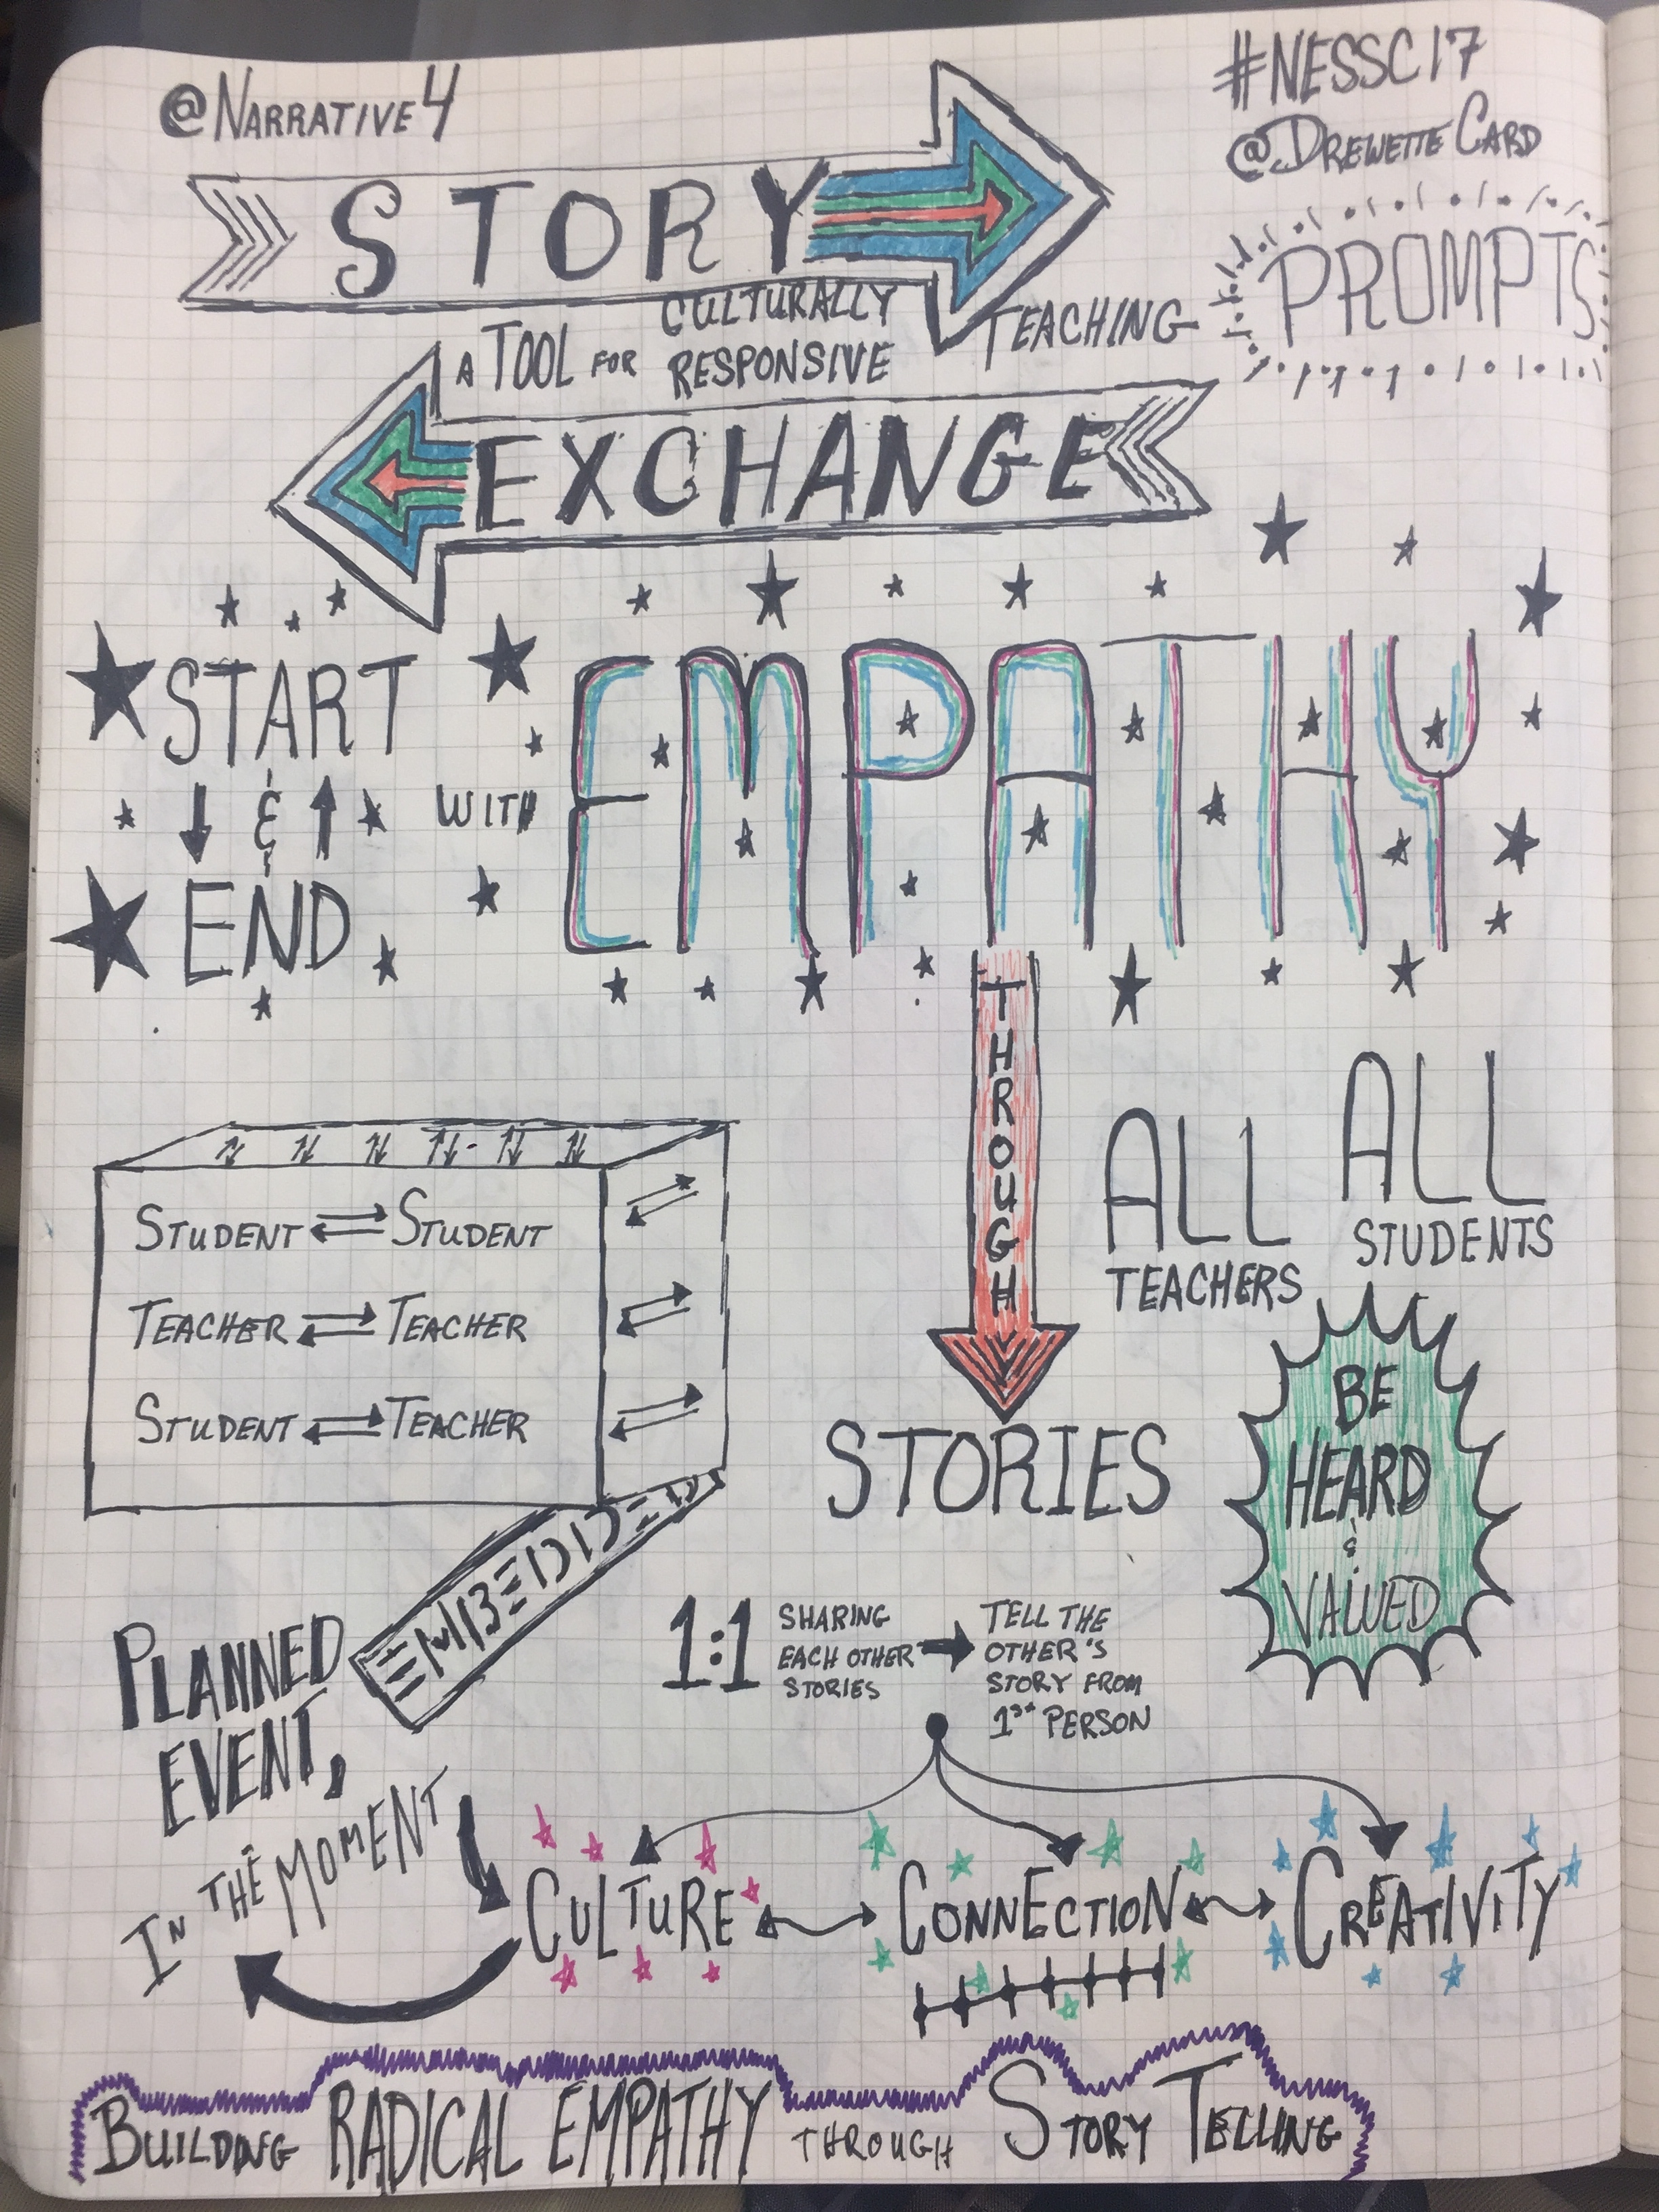 @NARRATIVE4
#NESSC17
@DREWETTECARD
STORY
PROMPTS
A TOOL FOR CULTURALLY RESPONSIVE TEACHING
EXCHANGE
START
& 
END
WITH
EMPATHY
THROUGH
STORIES
ALL
TEACHERS
ALL
STUDENTS
BE
HEARD
&
VALUED
STUDENT ⇄ STUDENT
TEACHER ⇄ TEACHER
STUDENT ⇄ TEACHER
EMBEDDED
PLANNED
EVENT,
IN THE MOMENT
1:1
SHARING
EACH OTHER
STORIES
→
TELL THE
OTHER'S
STORY FROM
1st PERSON
CULTURE
CONNECTION
CREATIVITY
BUILDING RADICAL EMPATHY THROUGH STORY TELLING